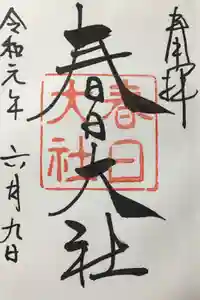 奉拝
春日大社
春日大社
令和元年 六月九日